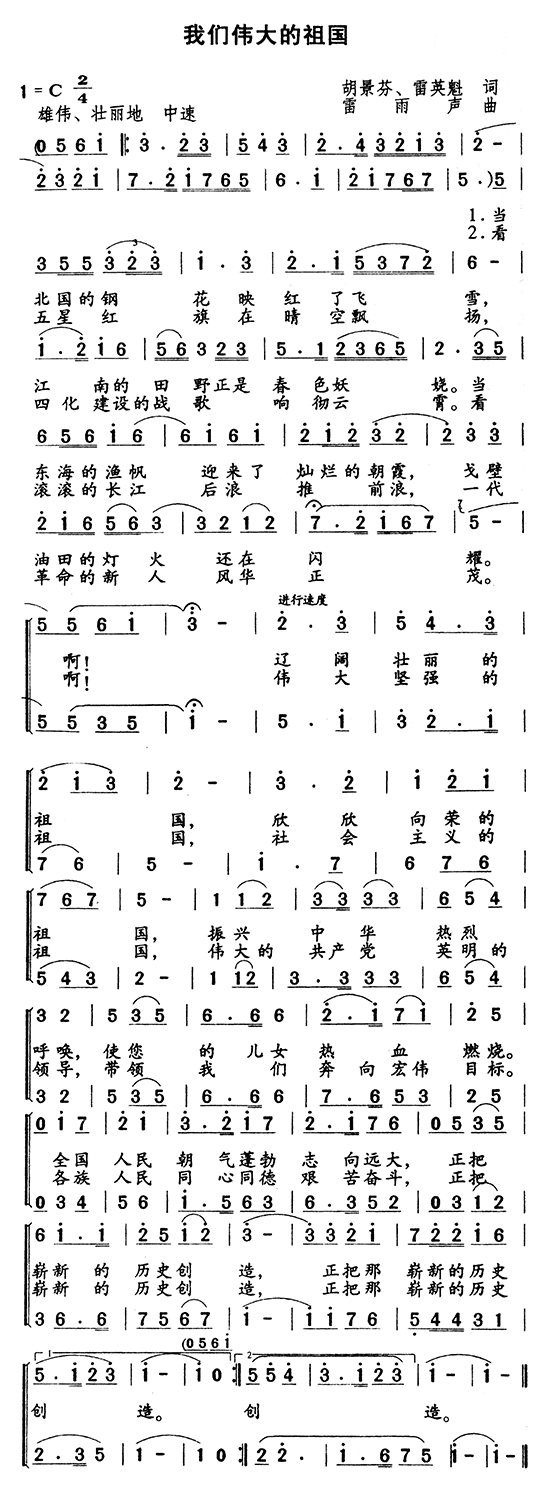 我们伟大的祖国
1=C 2/4
胡景芬、雷英魁 词
雄伟、壮丽地 中速
雷雨声 曲
(0 5 6 i ‖: 3 . 2 3 | 5 4 3 | 2 . 4 3 2 1 3 | 2 - |
2 3 2 1 | 7 . 2 1 7 6 5 | 6 . i | 2 1 7 6 7 | 5 . ) 5 |
1.当
2.看
3 5 5 3 2 3 | i . 3 | 2 . i 5 3 7 2 | 6 - |
北国的钢 花映红了飞 雪,
五星红 旗在晴空飘 扬,
i . 2 i 6 | 5 6 3 2 3 | 5 . 1 2 3 6 5 | 2 . 3 5 |
江 南的田 野正是春色妖 娆。当
四化建设的战 歌 响彻云 霄。看
6 5 6 i 6 | 6 i 6 i | 2 i 2 3 2 | 2 3 3 |
东海的渔帆 迎来了 灿烂的朝霞, 戈壁
滚滚的长江 后浪 推 前浪, 一代
2 i 6 5 6 3 | 3 2 1 2 | 7 . 2 i 6 7 | 5 - |
油田的灯火 还在闪 耀。
革命的新人 风华正 茂。
进行速度
5 5 6 i | 3 - | 2 . 3 | 5 4 . 3 |
啊! 辽阔壮丽的
啊! 伟大坚强的
5 5 3 5 | i - | 5 . i | 3 2 . i |
2 i 3 | 2 - | 3 . 2 | i 2 i |
祖 国, 欣欣向荣的
祖 国, 社会主义的
7 6 | 5 - | i . 7 | 6 7 6 |
7 6 7 | 5 - | 1 1 2 | 3 3 3 3 | 6 5 4 |
祖 国, 振兴 中华 热烈
祖 国, 伟大的 共产党 英明的
5 4 3 | 2 - | 1 1 2 | 3 . 3 3 3 | 6 5 4 |
3 2 | 5 3 5 | 6 . 6 6 | 2 . i 7 i | 2 5 |
呼唤, 使您 的儿女 热血 燃烧。
领导, 带领 我们 奔向宏伟 目标。
3 2 | 5 3 5 | 6 . 6 6 | 7 . 6 5 3 | 2 5 |
0 i 7 | 2 i | 3 . 2 i 7 | 2 . i 7 6 | 0 5 3 5 |
全国 人民 朝气蓬勃 志向远大, 正把
各族 人民 同心同德 艰苦奋斗, 正把
0 3 4 | 5 6 | i . 5 6 3 | 6 . 3 5 2 | 0 3 1 2 |
6 i . i | 2 5 i 2 | 3 - | 3 3 i 2 | 7 2 2 i 6 |
崭新的 历史创 造, 正把那 崭新的历史
崭新的 历史创 造, 正把那 崭新的历史
3 6 . 6 | 7 5 6 7 | i - | i i 7 6 | 5 4 4 3 1 |
(0 5 6 i
1
2
5 . i 2 3 | i - | i 0 :‖ 5 5 4 | 3 . i 2 3 | i - | i - ‖
创 造。 创 造。
2 . 3 5 | 1 - | 1 0 :‖ 2 2 . | i . 6 7 5 | i - | i - ‖